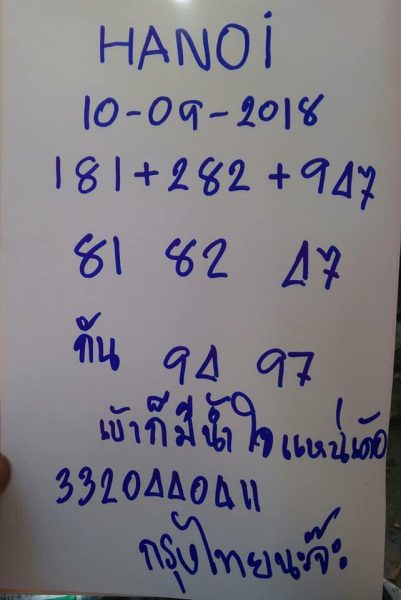 HANOi
10-09-2018
181+282+947
81 82 47
กัน 94 97
เข้าก็มีน้ำใจแหน่เด้อ
3320440411
กรุงไทยนะจ๊ะ